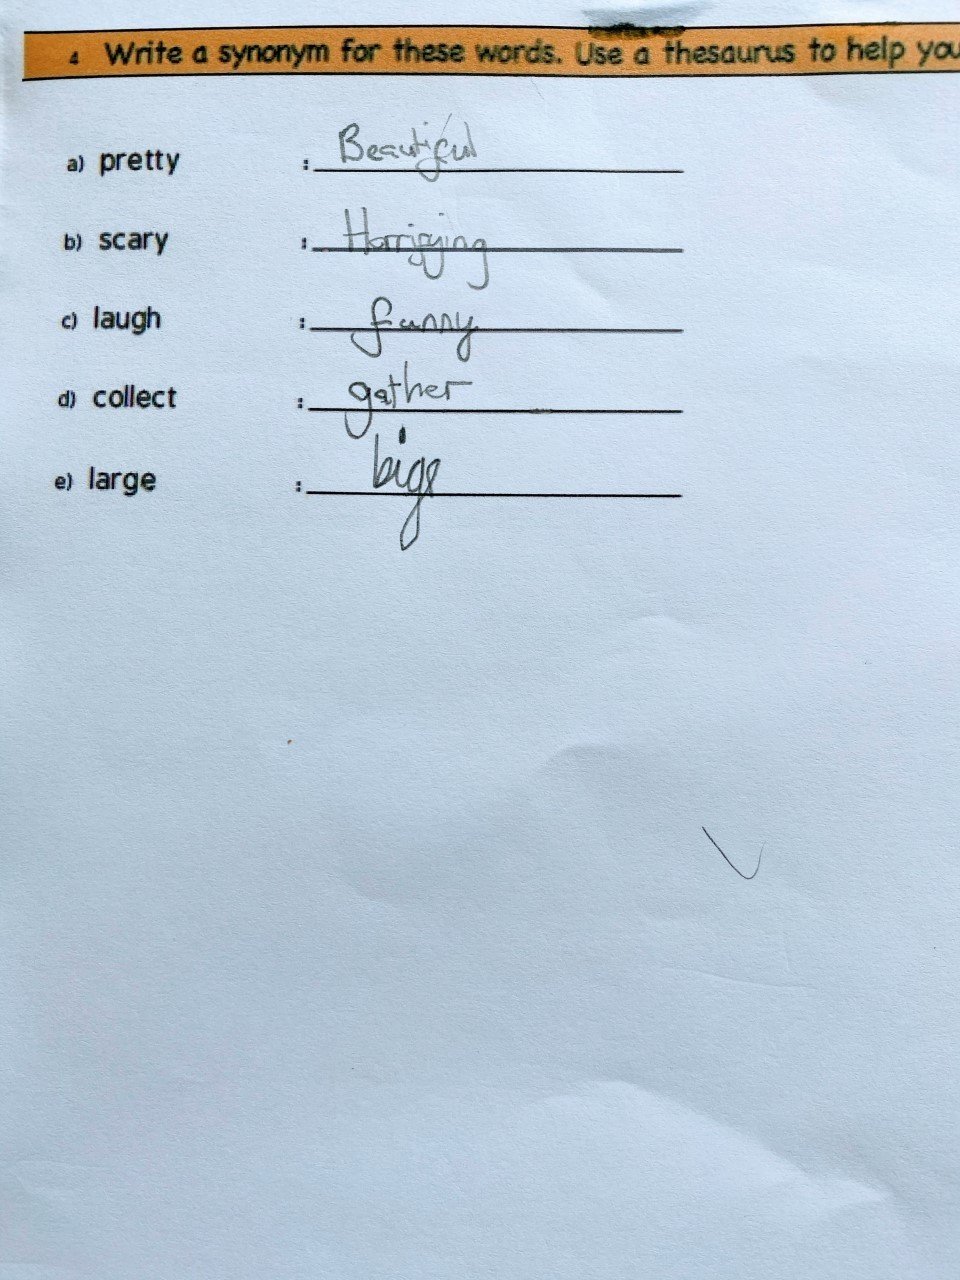 4 Write a synonym for these words. Use a thesaurus to help you
a) pretty : Beautiful
b) scary : Horrifying
c) laugh : funny
d) collect : gather
e) large :